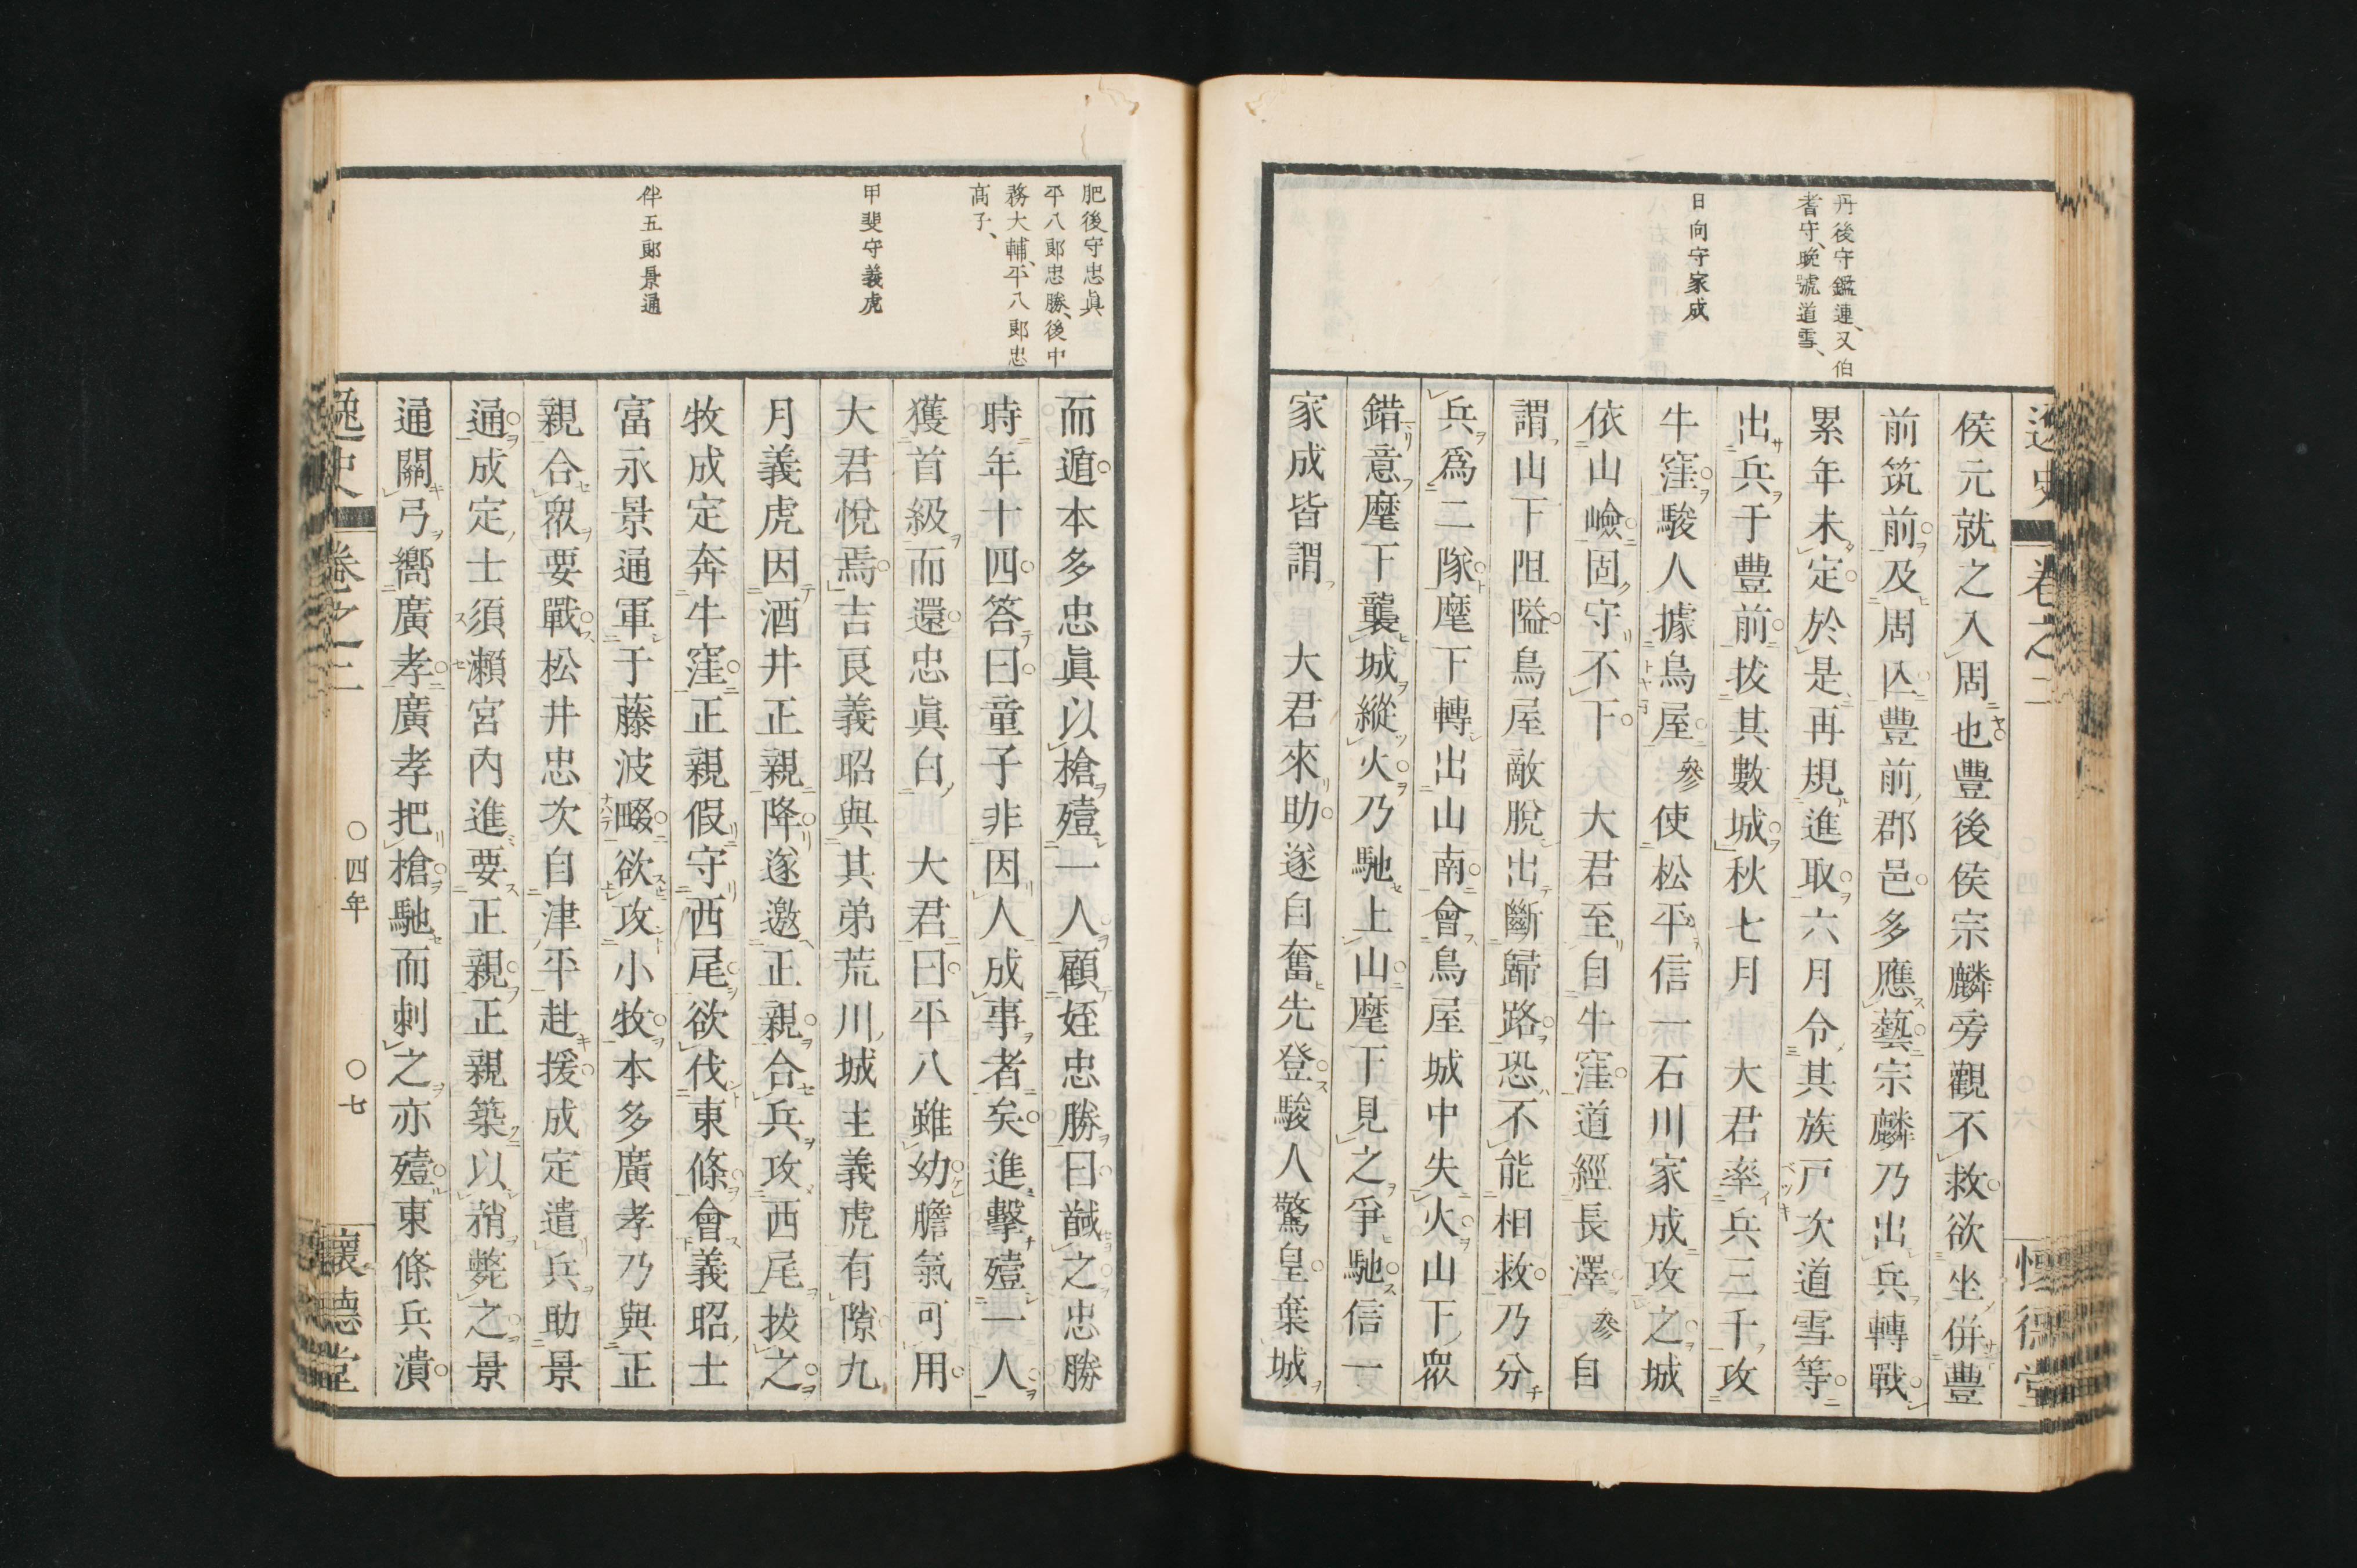 丹後守鑑連、又伯
耆守、晩號道雪、
日向守家成
逸史 卷之二 懷德堂
侯元就之入周也豐後侯宗麟旁觀不救欲坐併豐
前筑前及周𠆢豐前郡邑多應藝宗麟乃出兵轉戰
累年未定於是再規進取六月令其族戸次道雪等
出兵于豐前拔其數城秋七月 大君率兵三千攻
牛窪駿人據鳥屋參使松平信一石川家成攻之城
依山嶮固守不下 大君至自牛窪道經長澤參自
謂山下阻隘鳥屋敵脫出斷歸路恐不能相救乃分
兵爲二隊麾下轉出山南會鳥屋城中失火山下衆
錯意麾下襲城縱火乃馳上山麾下見之爭馳信一
家成皆謂 大君來助遂自奮先登駿人驚皇葉城
肥後守忠眞
平八郎忠勝、後中
務大輔、平八郎忠
高子、
甲斐守義虎
伴五郎景通
而遁本多忠眞以槍殪一人顧姪忠勝曰馘之忠勝
時年十四答曰童子非因人成事者矣進擊殪一人
獲首級而還忠眞白 大君曰平八雖幼膽氣可用
大君悅焉吉良義昭與其弟荒川城主義虎有隙九
月義虎因酒井正親降遂邀正親合兵攻西尾拔之
牧成定奔牛窪正親假守西尾欲伐東條會義昭士
富永景通軍于藤波畷欲攻小牧本多廣孝乃與正
親合衆要戰松井忠次自津平赴援成定遣兵助景
通成定士須瀨宮內進要正親正親築以矟斃之景
通關弓嚮廣孝廣孝把槍馳而刺之亦殪東條兵潰
逸史 卷之二 〇四年 〇七 懷德堂